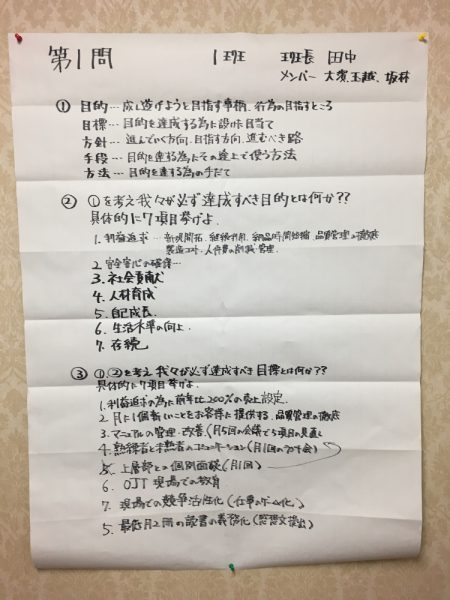 第1問 1班 班長 田中
メンバー 大濱、玉越、坂井
① 目的…成し遂げようと目指す事柄、行為の目指すところ
目標…目的を達成する為に設けた目当て
方針…進んでいく方向、目指す方向、進むべき路
手段…目的を達する為にその途上で使う方法
方法…目的を達する為の手だて
② ①を考え我々が必ず達成すべき目的とは何か??
具体的に7項目挙げよ.
1. 利益追求… 新規開拓、継続利用、納品時間短縮 品質管理の徹底
製造コスト・人件費の削減・管理
2. 安全安心の確保…
3. 社会貢献
4. 人材育成
5. 自己成長
6. 生活水準の向上
7. 存続
③ ①,②を考え我々が必ず達成すべき目標とは何か??
具体的に7項目挙げよ.
1. 利益追求の為に前年比200%の売上設定.
2. 月に1個新しいことをお客様に提供する.品質管理の徹底
3. マニュアルの管理・改善(月5回の会議で5項目の見直し
4. 熟練者と未熟者のコミュニケーション(月1回の
5. 上層部との個別面談(月1回)
6. OJT 現場での教育
7. 現場での競争活性化(仕事のゲーム化)
5. 最低月2回の読書の義務化(感想文提出)